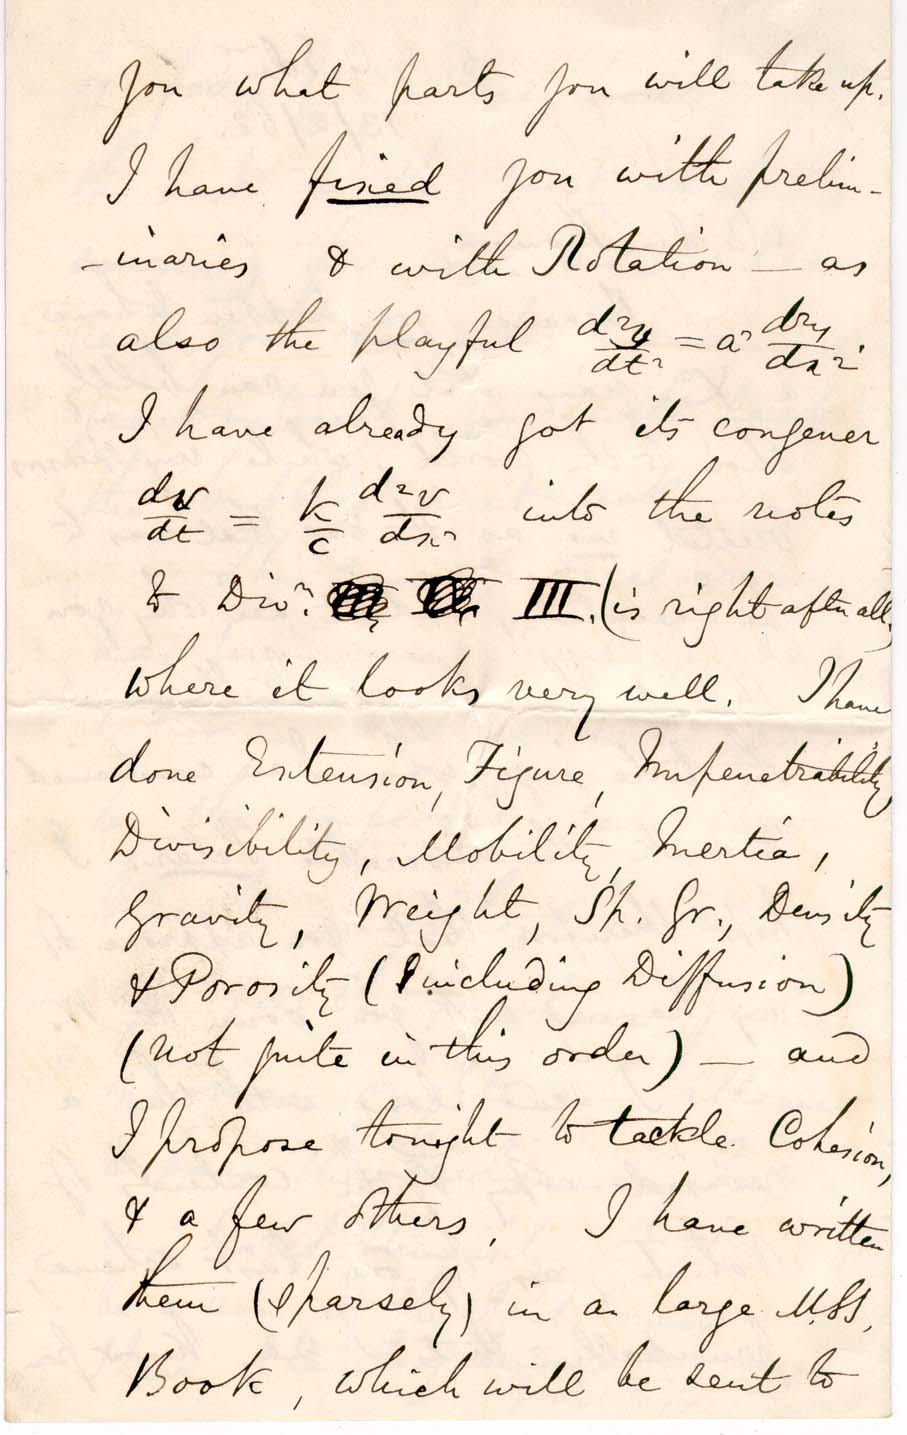 you what parts you will take up.
I have fixed you with prelim-
-inaries & with Rotation — as
also the playful d²y/dt² = a² d²y/dx²
I have already got its congener
dv/dt = k/c d²v/dx² into the notes
to Divⁿ. III. (is right after all)
where it looks very well. I have
done Extension, Figure, Impenetrability,
Divisibility, Mobility, Inertia,
Gravity, Weight, Sp. Gr., Density
& Porosity (including Diffusion)
(not quite in this order) — and
I propose tonight to tackle Cohesion,
& a few others. I have written
them (sparsely) in a large M.SS.
Book, which will be sent to